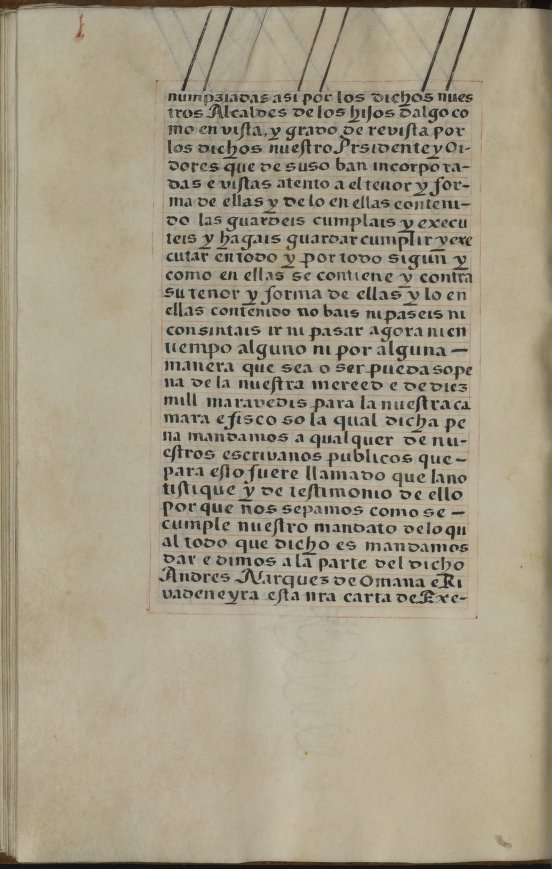 numpziadas asi por los dichos nues
tros Alcaldes de los hijos dalgo co
mo en vista, y grado de revista por
los dichos nuestro Prsidente y Oi-
dores que de suso ban incorpora-
das e vistas atento a el tenor y for-
ma de ellas y de lo en ellas conteni-
do las guardeis cumplais y execu
teis y hagais guardar cumplir y exe
cutar en todo y por todo sigun y
como en ellas se contiene y contra
su tenor y forma de ellas y lo en
ellas contenido no bais ni paseis ni
consintais ir ni pasar agora ni en
tiempo alguno ni por alguna —
manera que sea o ser pueda so pe
na de la nuestra merced e de diez
mill maravedis para la nuestra ca
mara e fisco so la qual dicha pe
na mandamos a qualquer de nu-
estros escrivanos publicos que —
para esto fuere llamado que la no
tistique y de testimonio de ello
por que nos sepamos como se —
cumple nuestro mandato de lo qu
al todo que dicho es mandamos
dar e dimos a la parte del dicho
Andres Narquez de Omana e Ri
vadeneyra esta nra carta de Exe-